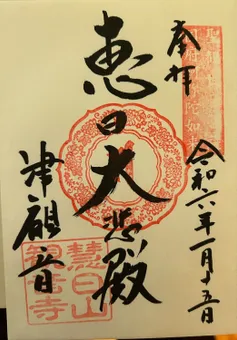 奉拝
令和六年一月十五日
恵日大悲殿
津観音
慧日山
観音寺